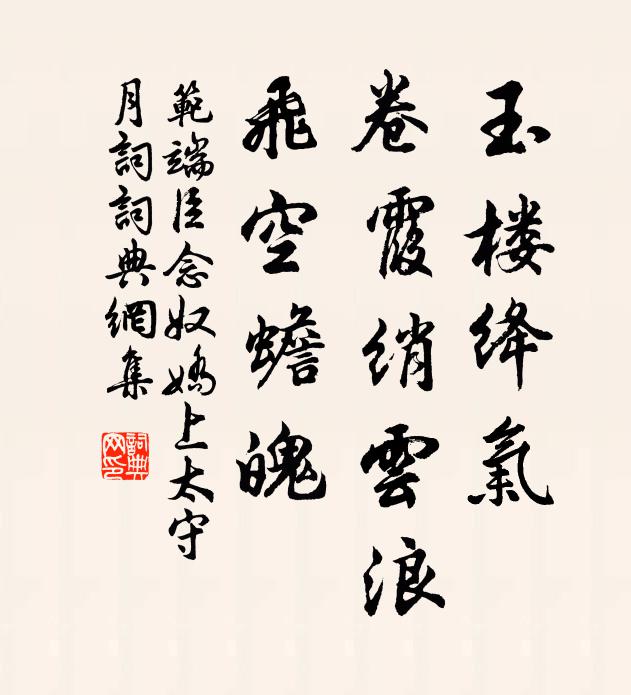 玉楼绛氣
卷霞绡雲浪
飛空蟾魄
範端臣念奴嬌上太守
月詞詞典網集
詞典網印